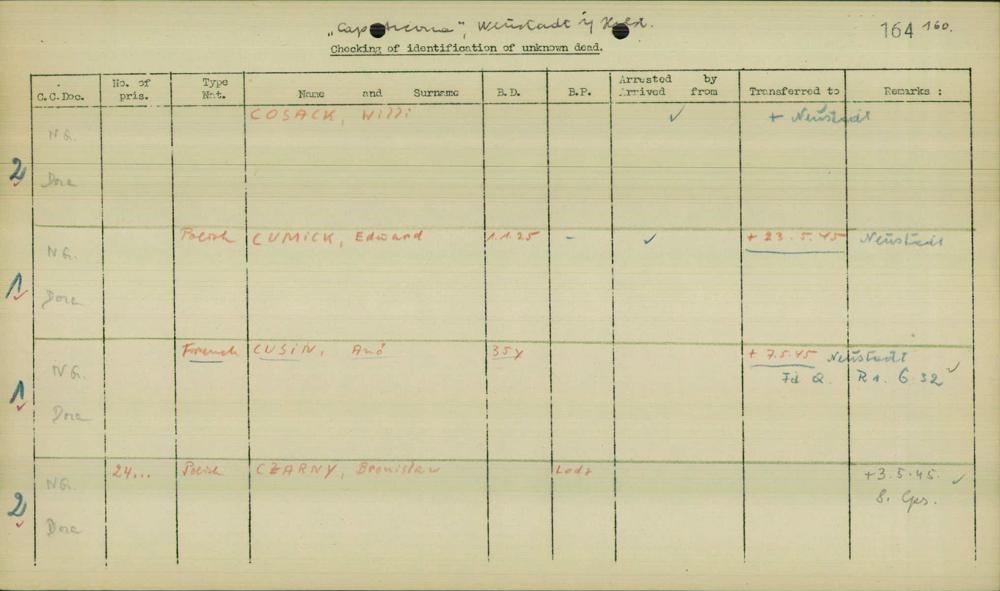 "Cap Arcona", Neustadt i/ Holst. 164 160.
Checking of identification of unknown dead.
C.C.Doc. No. of pris. Type Nat. Name and Surname B.D. B.P. Arrested by Arrived from Transferred to Remarks :
2 NG. Dora COSACK, Willi ✓ + Neustadt
1 NG. Dora Polish CUMICK, Edward 1.1.25 - ✓ + 23.5.45 Neustadt
1 NG. Dora French CUSIN, 35y + 7.5.45 Neustadt
R1. 632 ✓
2 NG. Dora 24... Polish CZARNY, Bronislaw Lodz +3.5.45. ✓